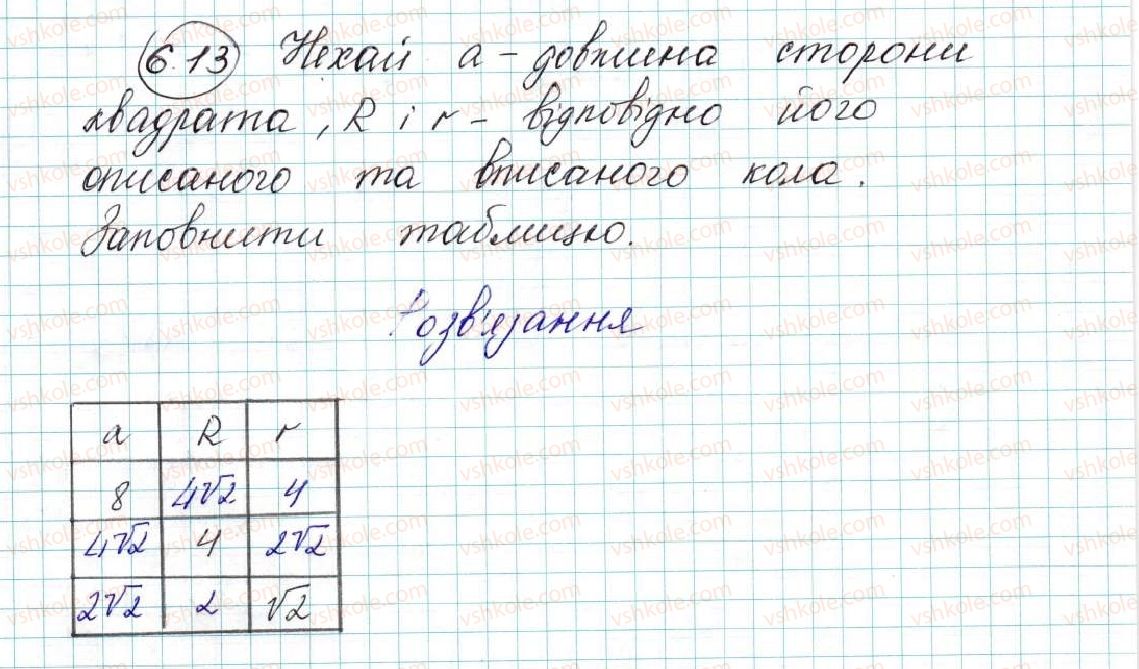 6.13 Нехай a – довжина сторони
квадрата, R і r – відповідно його
описаного та вписаного кола.
Заповнити таблицю.
Розв'язання
a R r
8 4√2 4
4√2 4 2√2
2√2 2 √2